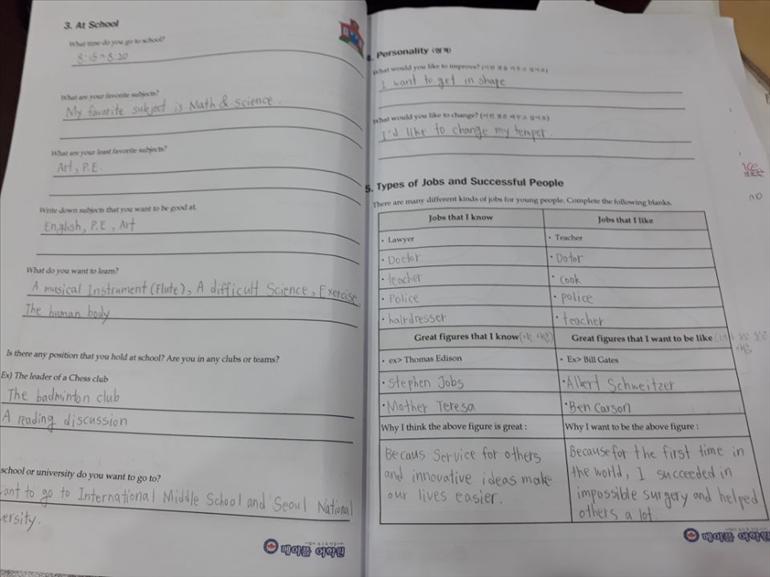 3. At School
What time do you go to school?
8:15~8:20
What are your favorite subjects?
My favorite subject is Math & science.
What are your least favorite subjects?
Art, P.E.
Write down subjects that you want to be good at.
English, P.E, Art
What do you want to learn?
A musical Instrument (Flute), A difficult Science, Exercise
The human body
Is there any position that you hold at school? Are you in any clubs or teams?
Ex) The leader of a Chess club
The badminton club
A reading discussion
school or university do you want to go to?
ant to go to International Middle School and Seoul National
ersity.
메이플 어학원
Personality (성격)
What would you like to improve?
I want to get in shape
What would you like to change?
I'd like to change my temper
5. Types of Jobs and Successful People
There are many different kinds of jobs for young people. Complete the following blanks.
Jobs that I know
Jobs that I like
• Lawyer
• Teacher
• Doctor
• Dotor
• teacher
• cook
• Police
• police
• hairdresser
• teacher
Great figures that I know
Great figures that I want to be like
• ex> Thomas Edison
• Ex> Bill Gates
• Stephen Jobs
• Albert Schweitzer
• Mother Teresa
• Ben Carson
Why I think the above figure is great :
Why I want to be the above figure :
Becaus Service for others
and innovative ideas make
our lives easier.
Because for the first time in
the world, I succeeded in
impossible surgery and helped
others a lot
메이플 어학원
no